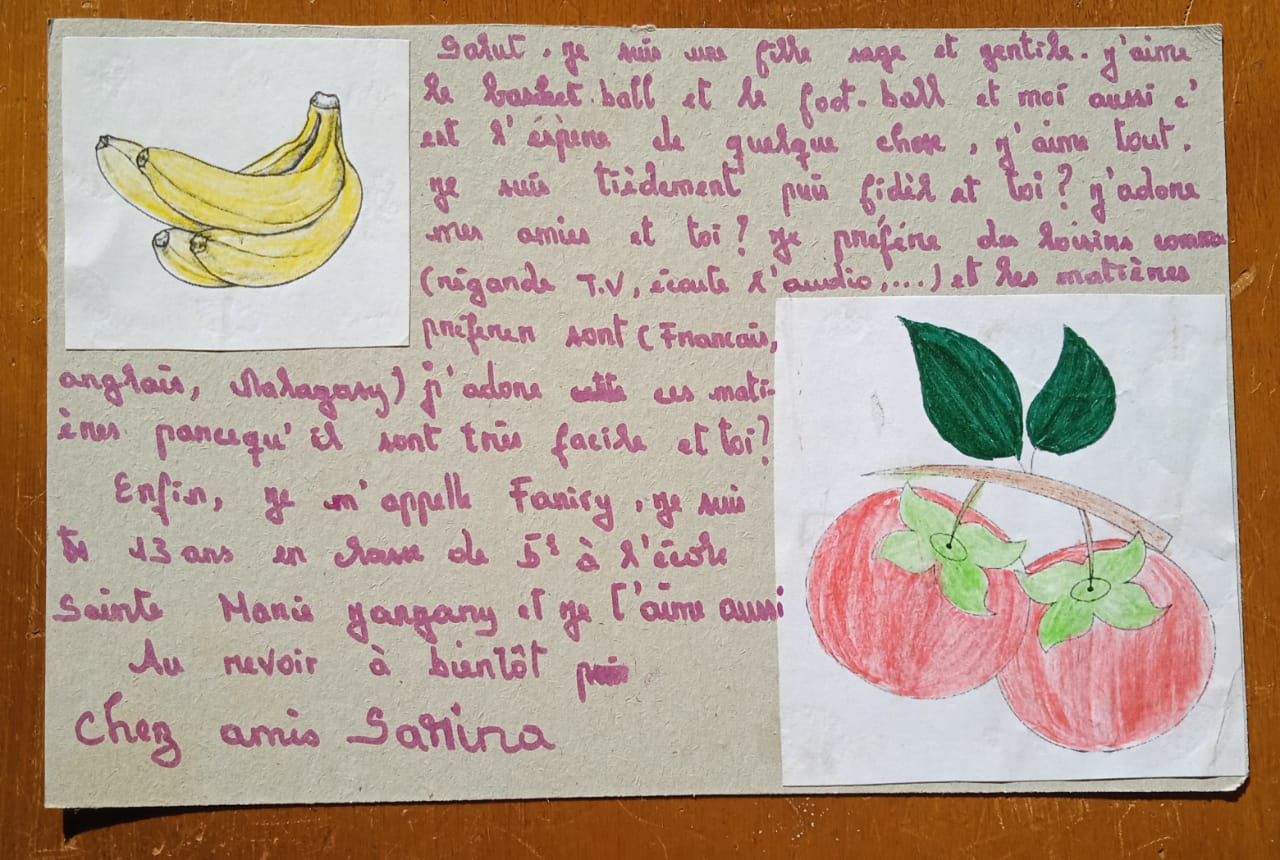 Salut, je suis une fille sage et gentile. j'aime
le basket-ball et le foot-ball et moi aussi c'
est l'éspère de quelque chose, j'aime tout.
je suis tièdement puis fidèl et toi? j'adore
mes amies et toi? je préfére des loisirs comme
(régarde T.V, écoute l'audio,...) et les matières
préferer sont (Francais,
anglais, Malagasy) j'adore ces mati-
ères parcequ'il sont très facile et toi?
Enfin, je m'appelle Faniry, je suis
13 ans en classe de 5è à l'école
Sainte Marie et je t'aime aussi
Au revoir à bientôt
chez amis Sarina